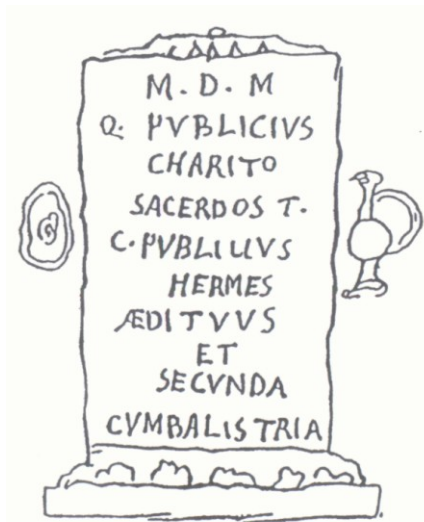 M · D · M
Q · PVBLICIVS
CHARITO
SACERDOS T ·
C · PVBLILIVS
HERMES
ÆDITVVS
ET
SECVNDA
CVMBALISTRIA